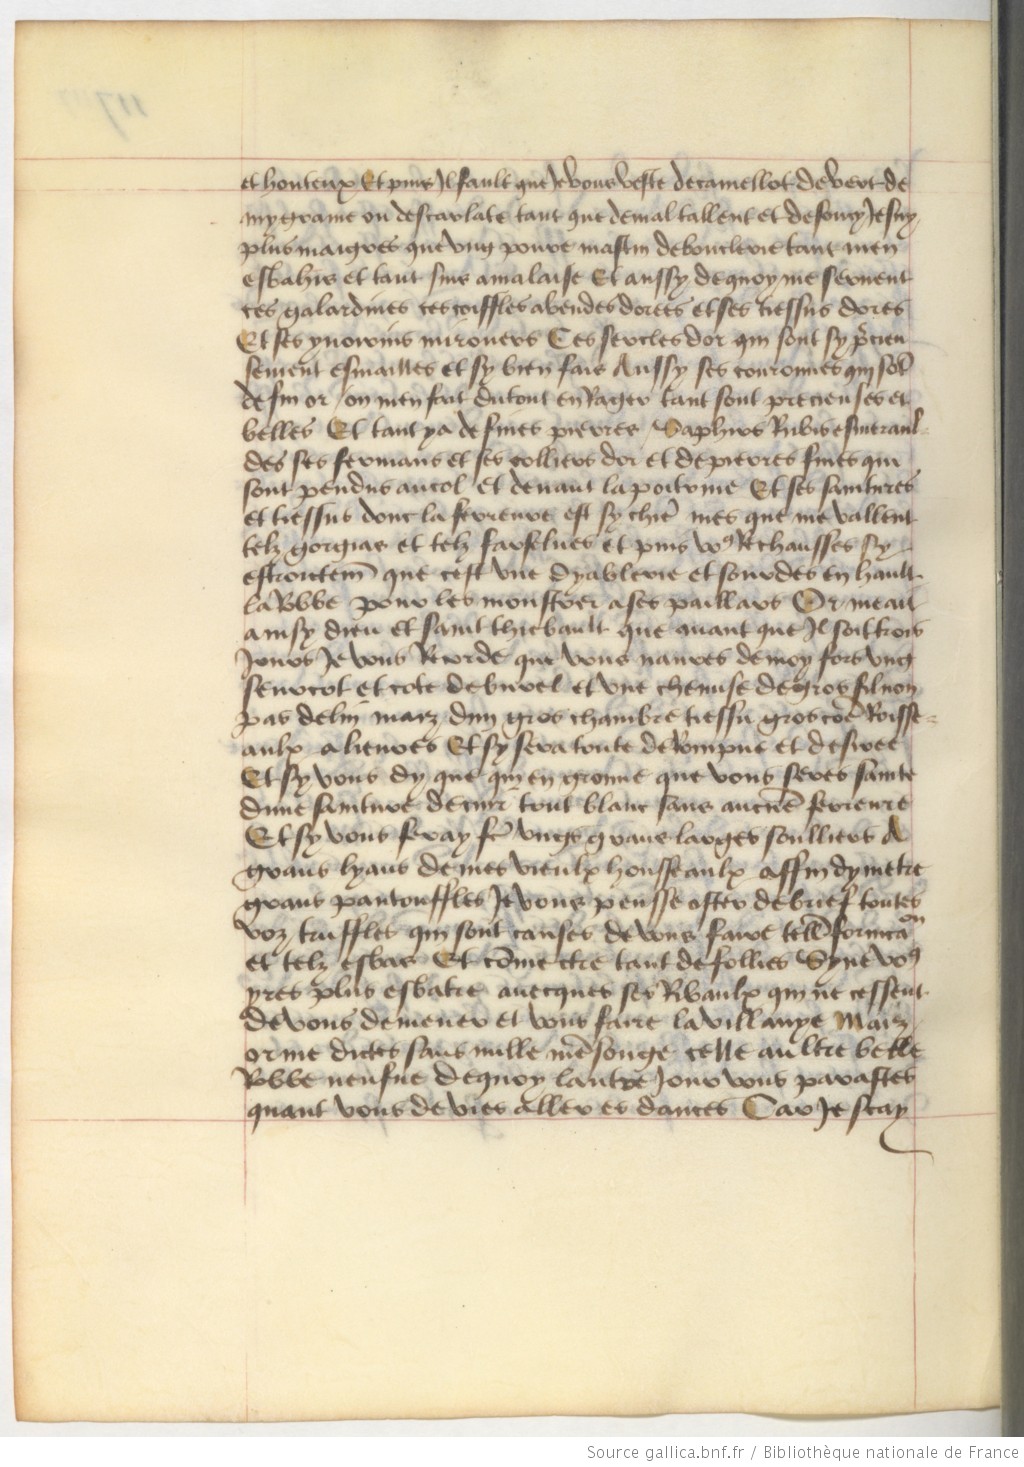 et honteux Et puis Il fault que Je vous veste de camellot de vert de
mygrame ou descarlate tant que de mal tallent et de soucy Je suy
plus maigres que ung povre mastin de bouclerie tant men
esbahis et tant suis a malaise Et aussy de quoy me servent
ces galardines ces coiffles a bendes dorees et ses tiessus dores
Et ses ynorins mirouers Ces sercles dor qui sont sy p̃cieu
sement esmailles et sy bien fais Aussy ses couronnes qui sõt
de fin or / on men fait du tout enRager tant sont precieuses et
belles Et tant ya de fines pierres / Saphirs Rubis esmeraul-
des ses fermans et ses colliers dor et de pierres fines qui
sont pendus au col et devant la poitrine Et ses saintures
et tiessus dont la ferreure est sy chiẽ mes que me vallent
telz gorgias et telz farfelues et puis vo9 Rechausses sy
estroitem̃ que cest une dyablerie et sourdes en hault
la Robbe pour les monstrer a ses paillars Or me ait
ainsy dieu et saint thiebault que avant que Il soit trois
Jours Je vous Recorde que vous naures de moy fors ung
seurcot et cote de burel et une chemise de gros fil non
pas de lin marz dun gros chambre tiessu gros cõe Roisse-
aulx a lieures Et sy sera toute deRompue et desiree
Et sy vous dy que qui en grome que vous seres sainte
dune sainture de cuir tout blanc sans aucũe ferreure
Et sy vous feray fẽ ungs grans larges soulliers A
grans lyans de mes vieulx housseaulx affin dy metre
grans pantouffles Je vous pensse oster de brief toutes
voz truffles qui sont causes de vous faire tell̃ fornica on
et telz esbas Et cõmectre tant de follies Sy ne vo9
yres plus esbatre avecques ses Ribaulx qui ne cessent
de vous demener et vous faire la villanye Marz
or me dictes sans nulle mẽsonge celle aultre belle
Robbe neufue de quoy lautre Jour vous parastes
quant vous devies aller es dances Car Je scay
Source gallica.bnf.fr / Bibliothèque nationale de France